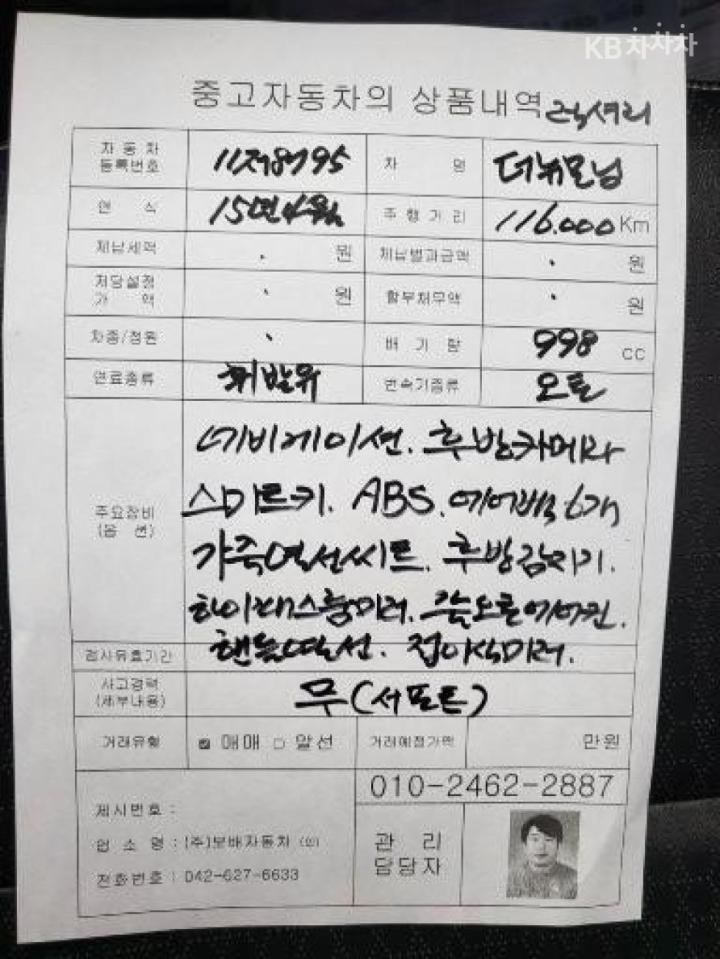 KB차차차
중고자동차의 상품내역 럭셔리
자동차 등록번호 11저8795 차 명 더뉴모닝
연 식 15년 4월 주행거리 116.000 Km
체납세액 . 원 체납벌과금액 . 원
저당설정 가 액 . 원 할부채무액 . 원
차종/정원 . 배 기 량 998 cc
연료종류 휘발유 변속기종류 오토
주요장비 (옵 션)
네비게이션. 후방카메라
스마트키. ABS. 에어백 6개
가죽열선씨트. 후방감지기.
하이패스룸미러. 풀오토에어컨.
핸들열선. 접이식미러.
검사유효기간
사고경력 (세부내용) 무(서포트)
거래유형 ☑ 매매 □ 알선 거래예정가액 만원
010-2462-2887
제시번호 :
업 소 명 : (주)보배자동차 (인)
전화번호 : 042-627-6633
관 리
담당자